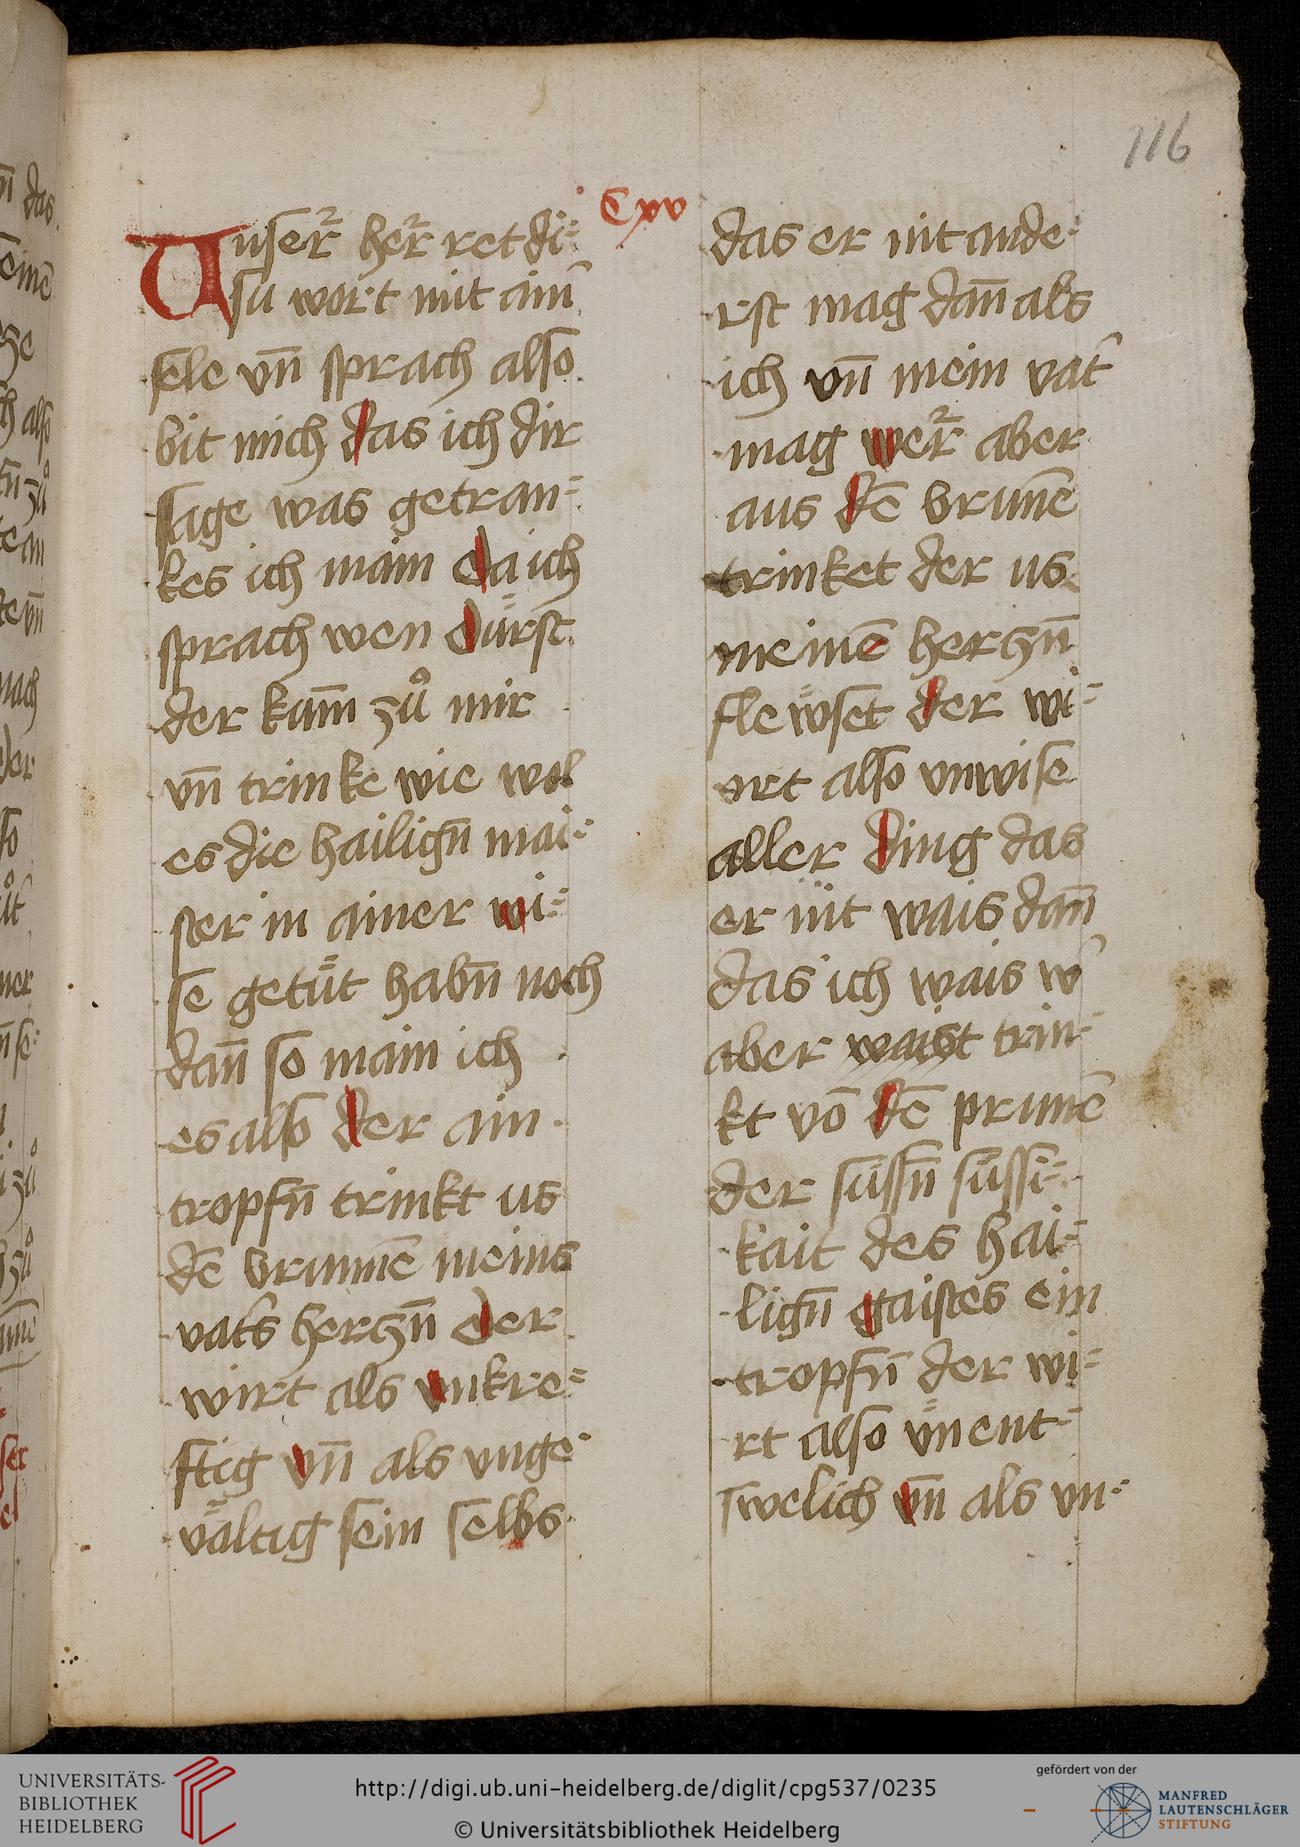 116
Cxv
Unser᷑ her᷑ ret di⸗
su wort mit aim̄
sele vn̄ sprach also
bit mich das ich dir
sage was getran⸗
kes ich main da ich
sprach wen dürst
der kam̄ zů mir
vn̄ trinke wie wol
es die hailign̄ mai⸗
ster in ainer wi⸗
se getüt habn̄ noch
dan̄ so main ich
es also der ain
tropfn̄ trinkt us
dē brunnē meins
vat̄s herczn̄ der
wirt als vnkre⸗
ftig vn̄ als vnge
vältig sein selbs
das er nit ande⸗
rst mag dan̄ als
ich vn̄ mein vat̄
mag wer᷑ aber
aus dē brunē
trinket der us
meinē herczn̄
flewset der wi⸗
ort also vnwise
aller ding das
er nit wais dan̄
das ich wais w̄
aber waist trin⸗
kt vō dē prunnē
der süssn̄ süssi⸗
kait des hai⸗
lign̄ gaistes ein
tropfn̄ der wi⸗
rt also vnent⸗
swelich vn̄ als vn⸗
UNIVERSITÄTS-
BIBLIOTHEK
HEIDELBERG
http://digi.ub.uni-heidelberg.de/diglit/cpg537/0235
© Universitätsbibliothek Heidelberg
gefördert von der
MANFRED
LAUTENSCHLÄGER
STIFTUNG